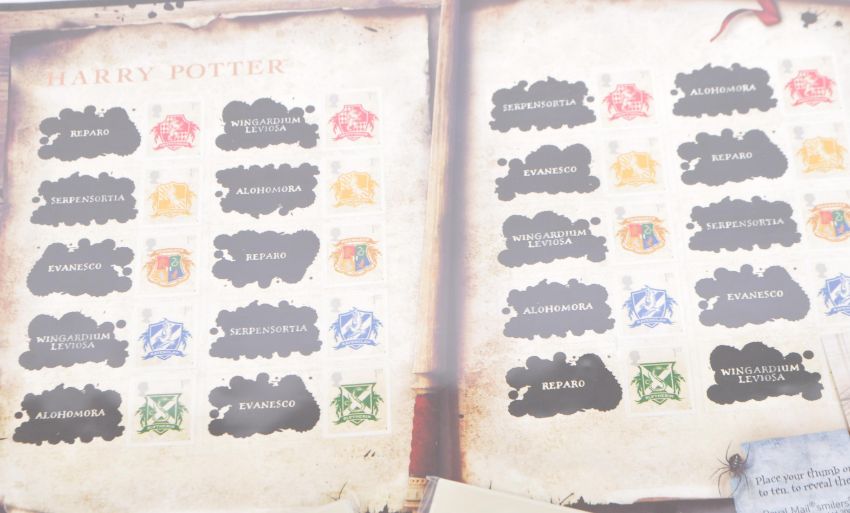 HARRY POTTER
REPARO
WINGARDIUM
LEVIOSA
SERPENSORTIA
ALOHOMORA
EVANESCO
REPARO
WINGARDIUM
LEVIOSA
SERPENSORTIA
ALOHOMORA
EVANESCO
SERPENSORTIA
ALOHOMORA
EVANESCO
REPARO
WINGARDIUM
LEVIOSA
SERPENSORTIA
ALOHOMORA
EVANESCO
REPARO
WINGARDIUM
LEVIOSA
Place your thumb
to ten, to reveal the
Mail® smilers